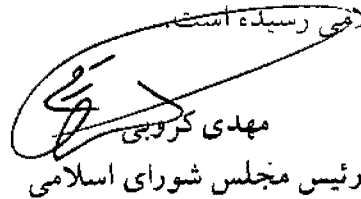 لامی رسیده است.
مهدی کروبی
رئیس مجلس شورای اسلامی